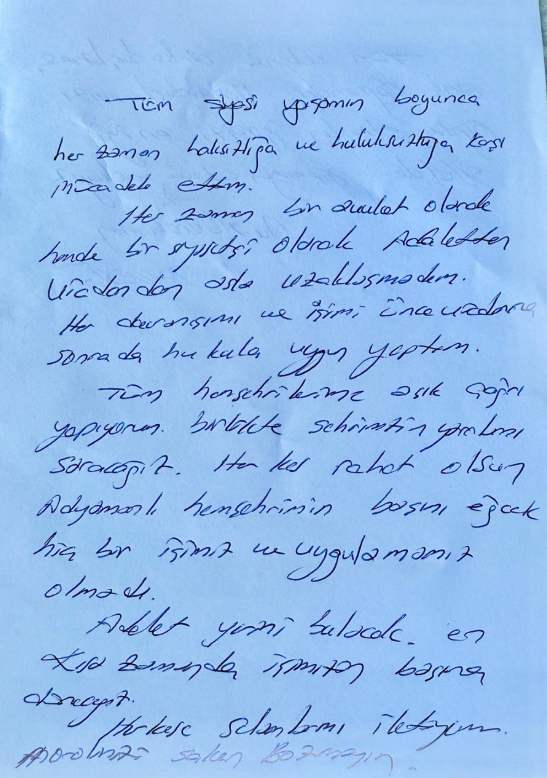 Tüm siyasi yaşamım boyunca
her zaman haksızlığa ve hukuksuzluğa karşı
mücadele ettim.
Her zaman bir avukat olarak
hemde bir siyasetçi olarak Adaletten
Vicdandan asla uzaklaşmadım.
Her davranışımı ve işimi önce vicdanıma
sonrada hukuka uygun yaptım.
Tüm hemşehrilerime açık çağrı
yapıyorum. birlikte şehrimizin yaralarını
saracağız. Herkes rahat olsun
Adıyamanlı hemşehrimin başını eğecek
hiç bir işimiz ve uygulamamız
olmadı.
Adalet yerini bulacak. en
kısa zamanda işimizin başına
döneceğiz.
Herkese selamlarımı iletiyorum.
Moralinizi sakın Bozmayın.